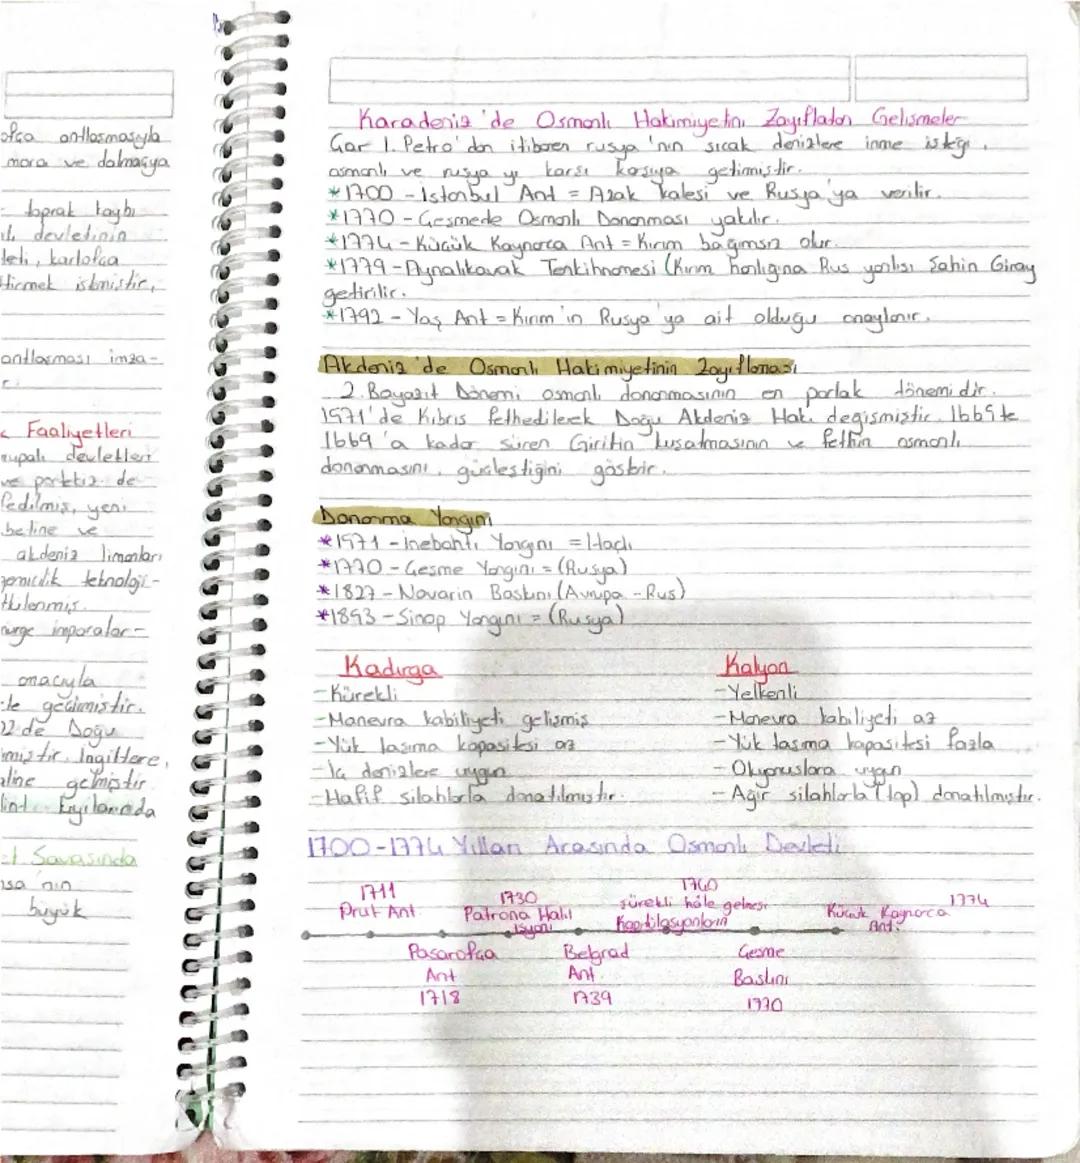 ofça antlaşmasıyla
mora ve dalmaçya
toprak kaybı
devletinin
leti, karlofça
istemiştir,
antlaşması imza-
Faaliyetleri
rupalı devletleri
ve portekiz de
fedilmiş, yeni
beline ve
akdeniz limanları
gemicilik teknoloji-
tkilenmiş.
imparator-
amacıyla
geçilmiştir.
de Doğu
mıştır. İngiltere,
aline gelmiştir
t Savaşında
nsa'nın
büyük
Karadeniz'de Osmanlı Hakimiyetini Zayıflatan Gelişmeler
Çar 1. Petro'dan itibaren rusya'nın sıcak denizlere inme isteği,
osmanlı ve rusya yı karşı karşıya getirmiştir.
*1700 - İstanbul Ant = Azak kalesi ve Rusya'ya verilir.
*1770 - Çeşmede Osmanlı Donanması yakılır.
*1774 - Küçük Kaynarca Ant = Kırım bağımsız olur.
*1779 - Aynalıkavak Tenkihnamesi (Kırım hanlığına Rus yanlısı Şahin Giray
getirilir.
*1792 - Yaş Ant = Kırım'ın Rusya'ya ait olduğu onaylanır.
Akdeniz'de Osmanlı Hakimiyetinin Zayıflaması
2. Bayazıt Dönemi osmanlı donanmasının en parlak dönemidir.
1571'de Kıbrıs fethedilerek Doğu Akdeniz Haki. değişmiştir. 1665 te
1669'a kadar süren Giritin kuşatmasının ve fethin osmanlı
donanmasını, güçleştiğini gösterir.
Donanma Yangını
*1571 - İnebahtı Yangını = Haçlı
*1770 - Çeşme Yangını = (Rusya)
*1827 - Navarin Baskını (Avrupa - Rus)
*1853 - Sinop Yangını = (Rusya)
Kadırga
- Kürekli
- Manevra kabiliyeti gelişmiş
- Yük taşıma kapasitesi az
- İç denizlere uygun
- Hafif silahlarla donatılmıştır.
Kalyon
- Yelkenli
- Manevra kabiliyeti az
- Yük taşıma kapasitesi fazla
- Okyanuslara uygun
- Ağır silahlarla (top) donatılmıştır.
1700-1774 Yılları Arasında Osmanlı Devleti
1711
Prut Ant
Pasarofça
Ant
1718
1730
Patrona Halil
İsyanı
Belgrad
Ant.
1739
1740
sürekli hale gelmesi
Kapitilasyonların
Çeşme
Baskını
1770
1774
Küçük Kaynarca
Ant.